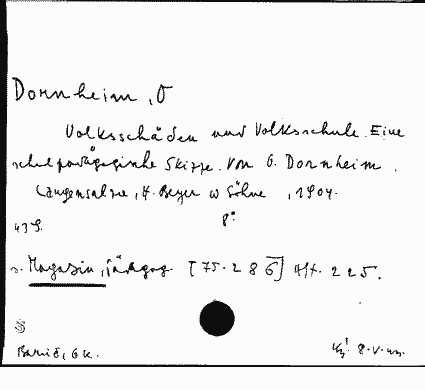 Dornheim, O
Volksschäden und Volksschule. Eine
schulpädagogische Skizze. Von O. Dornheim.
Langensalza, H. Beyer u Söhne, 1904.
8°
43 S.
s. Magazin, Pädagog. [75.286] Hft. 225.
8.V.